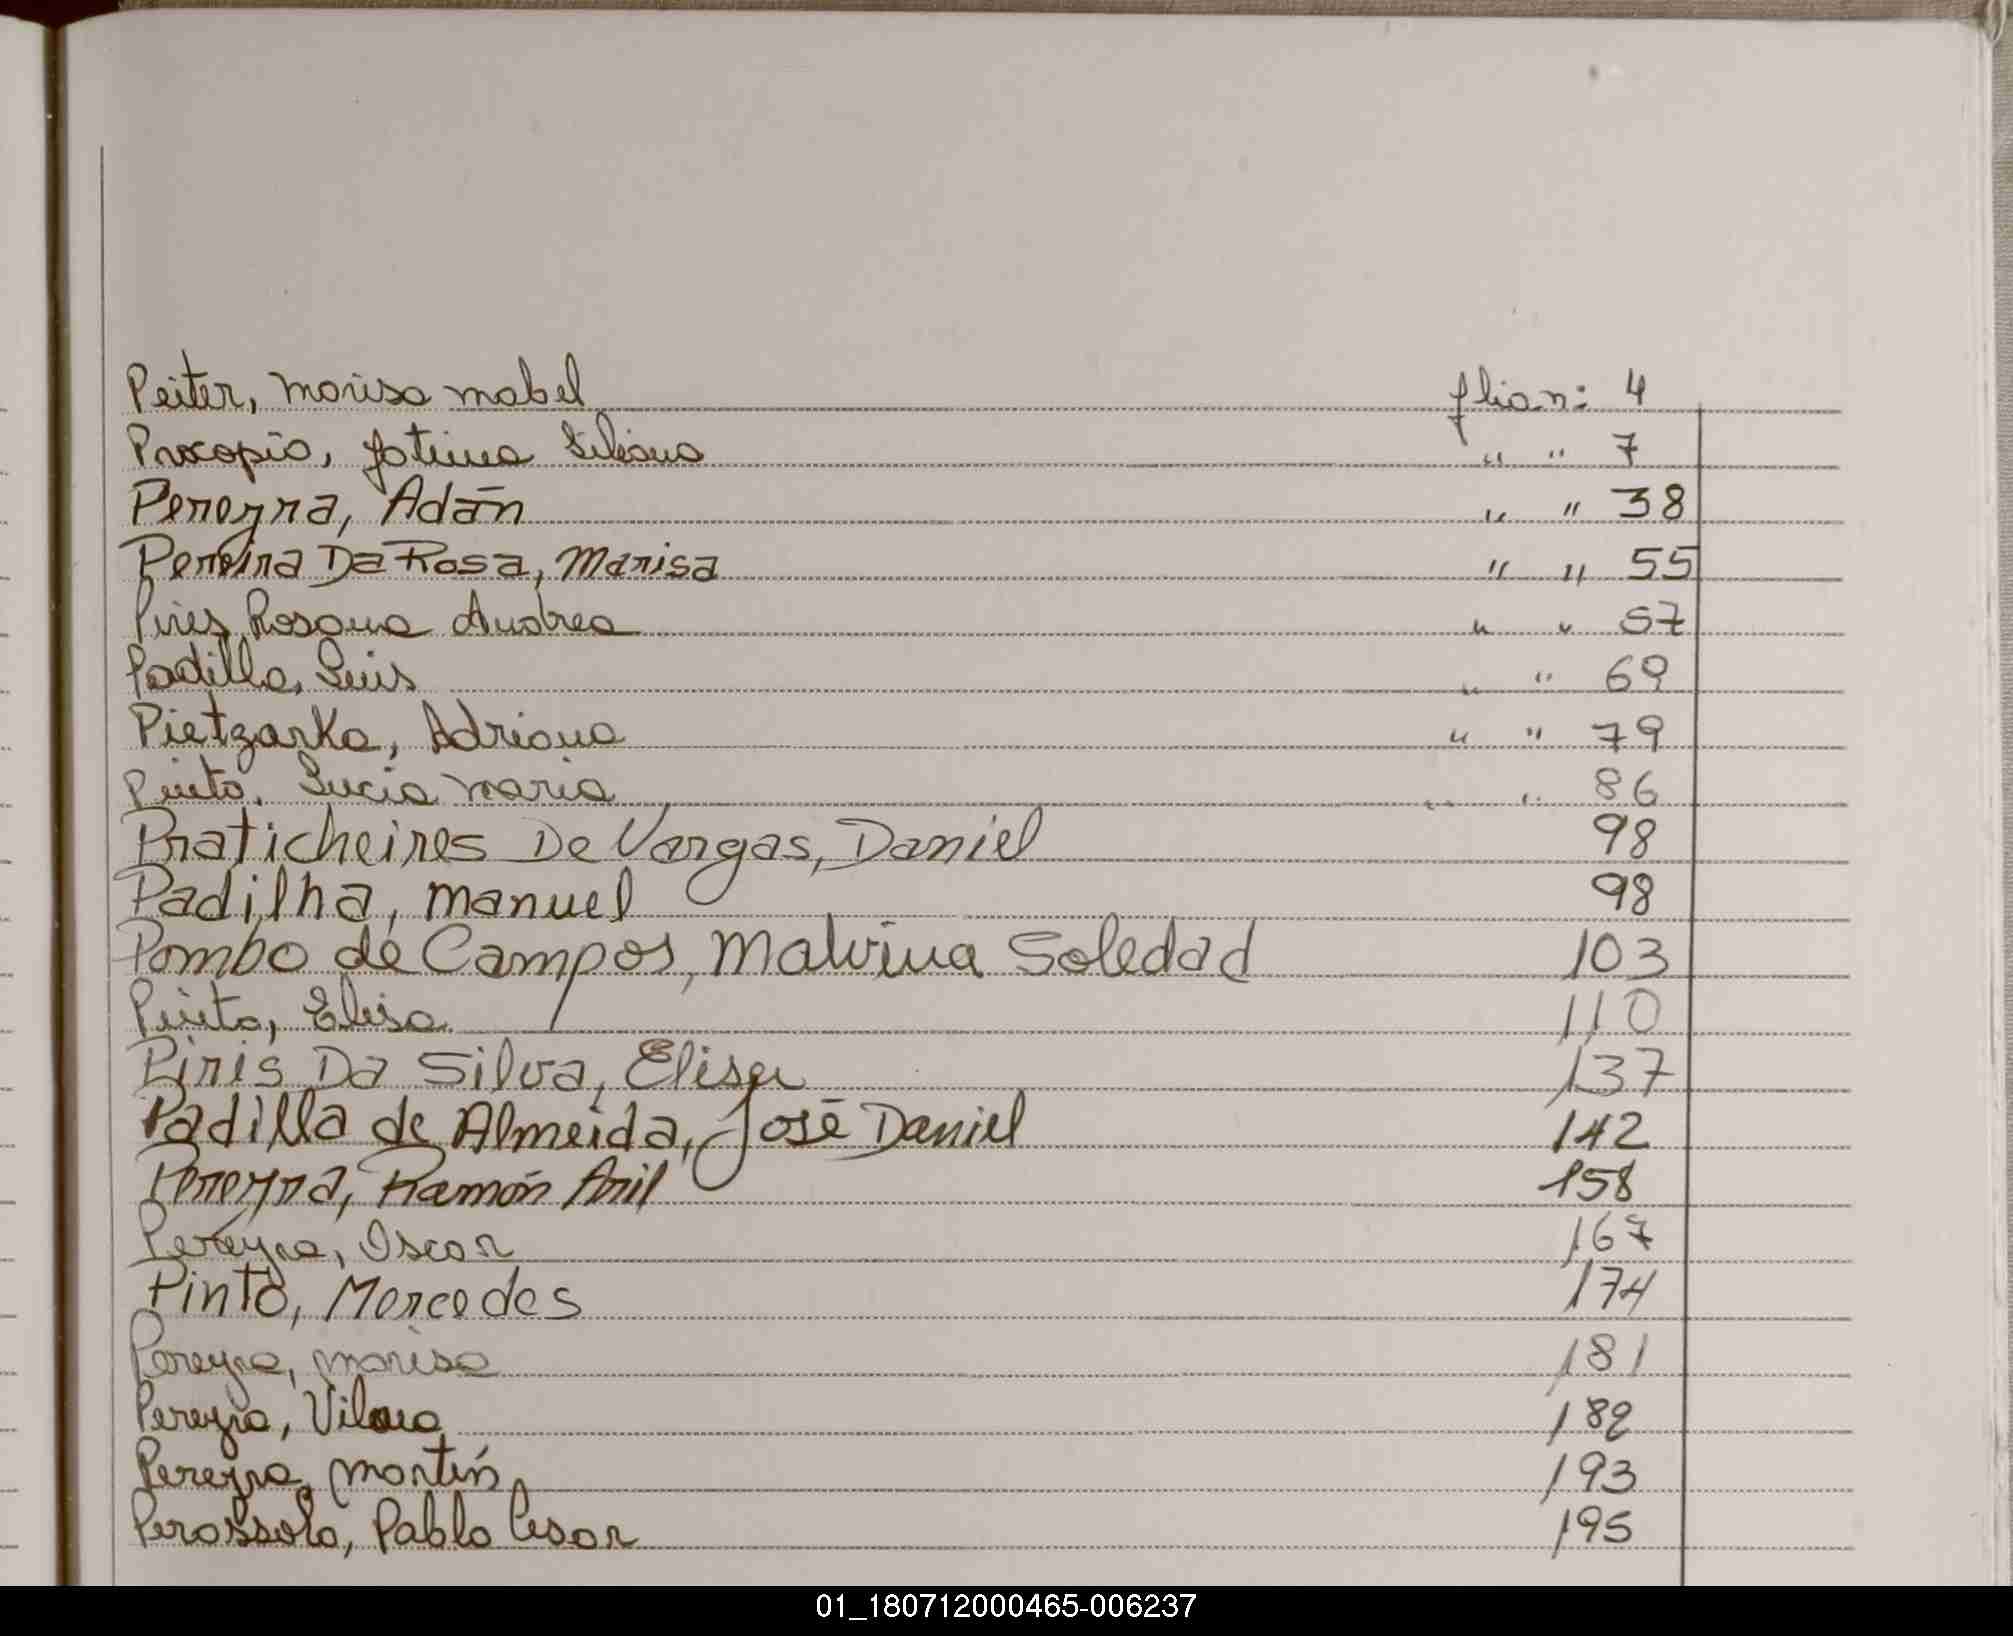 Peiter, Marisa Mabel flia n: 4
Procopio, Fatima Liliana " " 7
Pereyra, Adán " " 38
Pereira Da Rosa, Marisa " " 55
Pires, Rosana Andrea " " 57
Padilla, Luis " " 69
Pietzarka, Adriana " " 79
Pinto, Lucia Maria " " 86
Praticheires De Vargas, Daniel 98
Padilha, Manuel 98
Pombo de Campos, Malvina Soledad 103
Pinto, Elisa 110
Piris Da Silva, Elisa 137
Padilla de Almeida, José Daniel 142
Pereyra, Ramón 158
Pereyra, Oscar 167
Pinto, Mercedes 174
Pereyra, Marisa 181
Pereyra, Vilma 182
Pereyra, Martín 193
Perossolo, Pablo Cesar 195
01_180712000465-006237